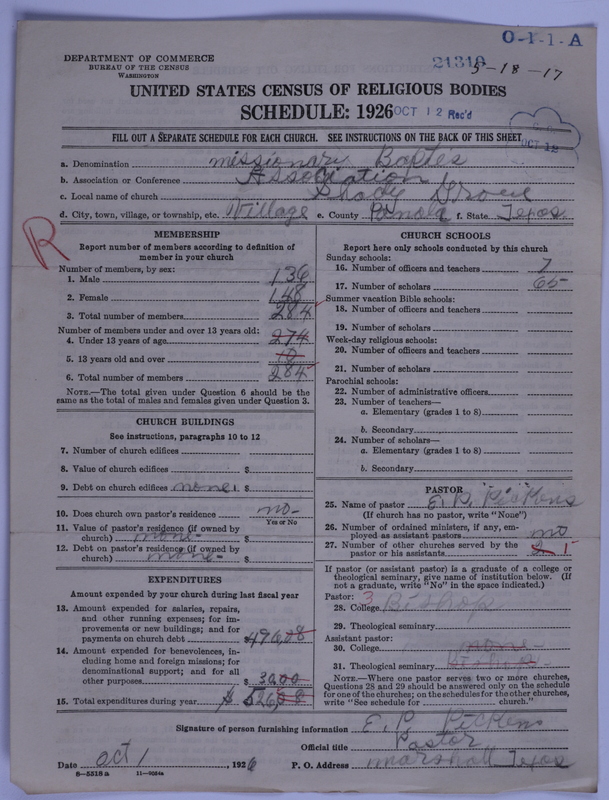 O-1-1-A
DEPARTMENT OF COMMERCE
BUREAU OF THE CENSUS
WASHINGTON
21310
5-18-17
UNITED STATES CENSUS OF RELIGIOUS BODIES
SCHEDULE: 1926
OCT 12 Rec'd
OCT 12
FILL OUT A SEPARATE SCHEDULE FOR EACH CHURCH. SEE INSTRUCTIONS ON THE BACK OF THIS SHEET
a. Denomination missionary Baptis
b. Association or Conference Association
c. Local name of church Shade Grove
d. City, town, village, or township, etc. Village e. County Panola f. State Texas
R
MEMBERSHIP
Report number of members according to definition of member in your church
Number of members, by sex:
1. Male 136
2. Female 148
3. Total number of members 284
Number of members under and over 13 years old:
4. Under 13 years of age 274
5. 13 years old and over 10
6. Total number of members 284
NOTE.—The total given under Question 6 should be the same as the total of males and females given under Question 3.
CHURCH BUILDINGS
See instructions, paragraphs 10 to 12
7. Number of church edifices
8. Value of church edifices $
9. Debt on church edifices none $
10. Does church own pastor's residence no
Yes or No
11. Value of pastor's residence (if owned by church) none $
12. Debt on pastor's residence (if owned by church) none $
EXPENDITURES
Amount expended by your church during last fiscal year
13. Amount expended for salaries, repairs, and other running expenses; for improvements or new buildings; and for payments on church debt 496,08
14. Amount expended for benevolences, including home and foreign missions; for denominational support; and for all other purposes $ 30.00
15. Total expenditures during year $ 526,08
CHURCH SCHOOLS
Report here only schools conducted by this church
Sunday schools:
16. Number of officers and teachers 7
17. Number of scholars 65
Summer vacation Bible schools:
18. Number of officers and teachers
19. Number of scholars
Week-day religious schools:
20. Number of officers and teachers
21. Number of scholars
Parochial schools:
22. Number of administrative officers
23. Number of teachers—
a. Elementary (grades 1 to 8)
b. Secondary
24. Number of scholars—
a. Elementary (grades 1 to 8)
b. Secondary
PASTOR
25. Name of pastor E. P. Pickens
(If church has no pastor, write "None")
26. Number of ordained ministers, if any, employed as assistant pastors no
27. Number of other churches served by the pastor or his assistants 2 1
If pastor (or assistant pastor) is a graduate of a college or theological seminary, give name of institution below. (If not a graduate, write "No" in the space indicated.)
Pastor: 3
28. College Bishop
29. Theological seminary
Assistant pastor:
30. College none
31. Theological seminary
NOTE.—Where one pastor serves two or more churches, Questions 28 and 29 should be answered only on the schedule for one of the churches; on the schedules for the other churches, write "See schedule for church."
Signature of person furnishing information E. P. Pickens
Official title Pastor
Date Oct 1, 1926 P. O. Address marshall Texas
8-5518 a 11-9084a